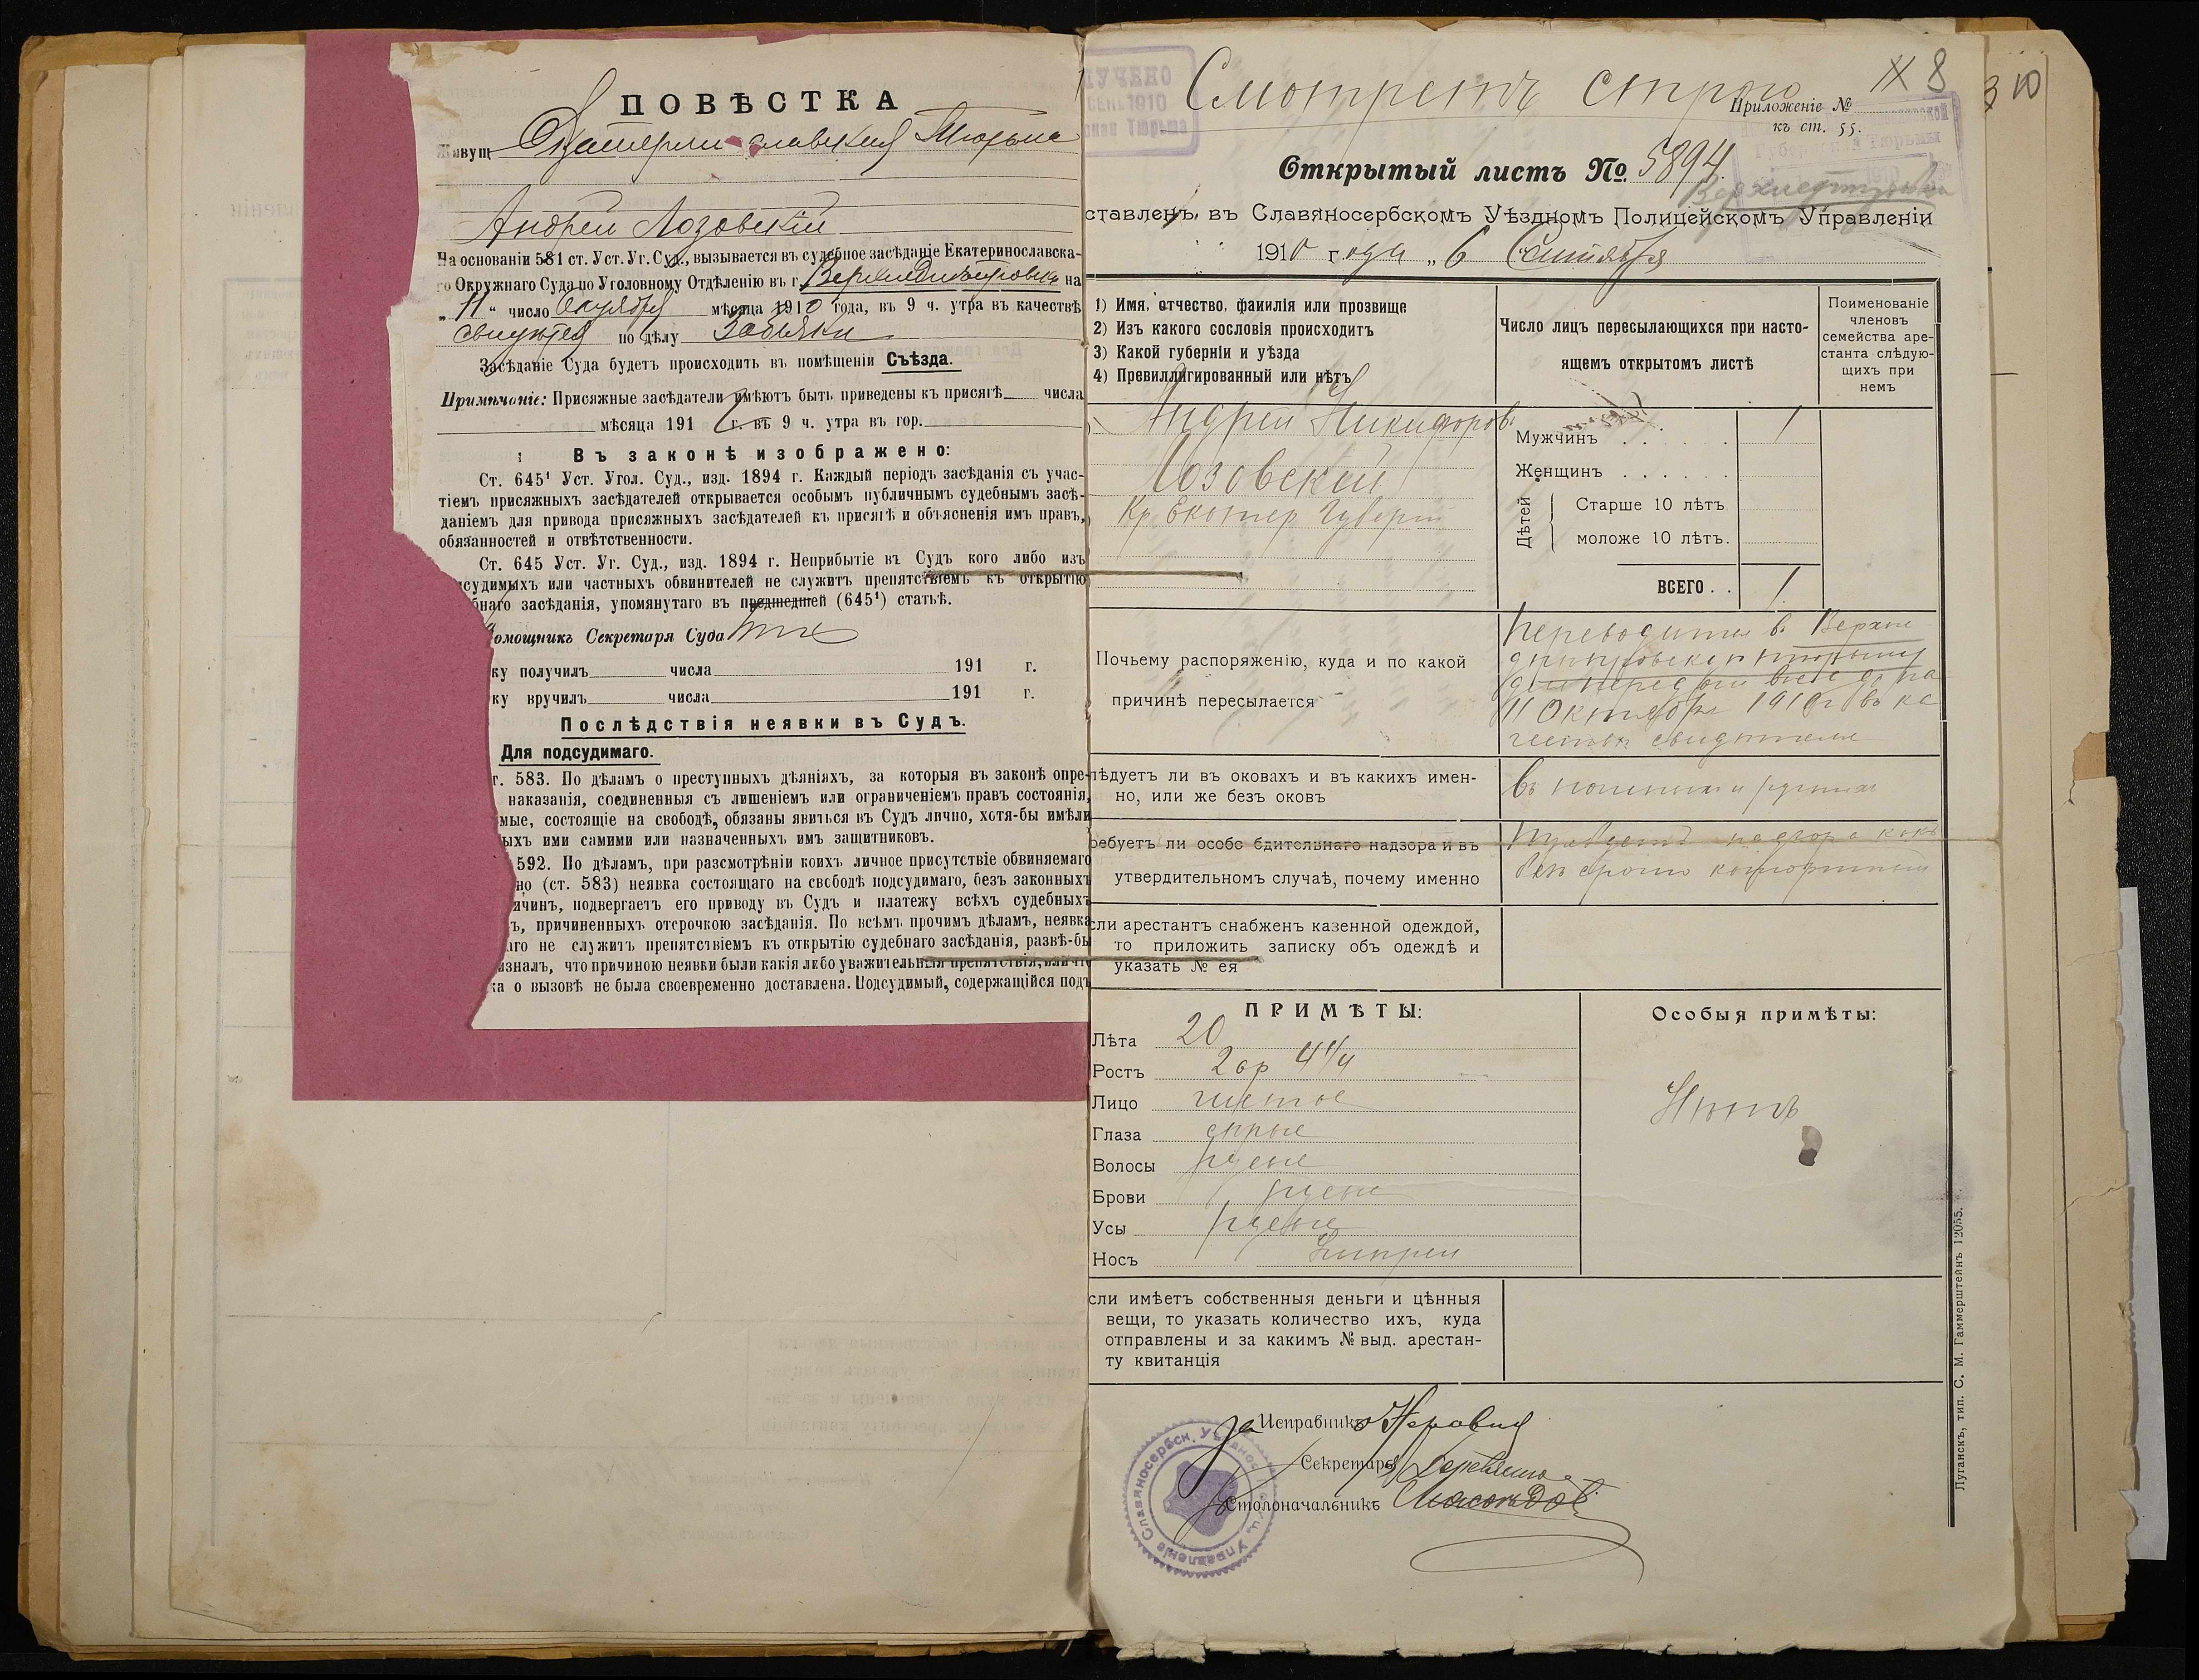 ПОВѢСТКА
Живущ Екатеринославская Тюрьма
Андрей Лозовскій
На основаніи 581 ст. Уст. Уг. Суд., вызывается въ судебное засѣданіе Екатеринославска-
го Окружнаго Суда по Уголовному Отдѣленію въ г. Верхнеднѣпровскъ на
„ 11 “ число Октября мѣсяца 1910 года, въ 9 ч. утра въ качествѣ
свидѣтеля по дѣлу
Засѣданіе Суда будетъ происходить въ помѣщеніи Съѣзда.
Примѣчаніе: Присяжные засѣдатели имѣютъ быть приведены къ присягѣ числа
мѣсяца 191 г. въ 9 ч. утра въ гор.
Въ законѣ изображено:
Ст. 645¹ Уст. Угол. Суд., изд. 1894 г. Каждый періодъ засѣданія съ учас-
тіемъ присяжныхъ засѣдателей открывается особымъ публичнымъ судебнымъ засѣ-
даніемъ для привода присяжныхъ засѣдателей къ присягѣ и объясненія имъ правъ,
обязанностей и отвѣтственности.
Ст. 645 Уст. Уг. Суд., изд. 1894 г. Неприбытіе въ Судъ кого либо изъ
судимыхъ или частныхъ обвинителей не служитъ препятствіемъ къ открытію
бнаго засѣданія, упомянутаго въ предшедшей (645¹) статьѣ.
омощникъ Секретаря Суда
ку получилъ числа 191 г.
ку вручилъ числа 191 г.
Послѣдствія неявки въ Судъ.
Для подсудимаго.
т. 583. По дѣламъ о преступныхъ дѣяніяхъ, за которыя въ законѣ опре-
наказанія, соединенныя съ лишеніемъ или ограниченіемъ правъ состоянія,
мые, состоящіе на свободѣ, обязаны явиться въ Судъ лично, хотя-бы имѣли
ыхъ ими самими или назначенныхъ имъ защитниковъ.
592. По дѣламъ, при разсмотрѣніи коихъ личное присутствіе обвиняемаго
но (ст. 583) неявка состоящаго на свободѣ подсудимаго, безъ законныхъ
ичинъ, подвергаетъ его приводу въ Судъ и платежу всѣхъ судебныхъ
ъ, причиненныхъ отсрочкою засѣданія. По всѣмъ прочимъ дѣламъ, неявка
аго не служитъ препятствіемъ къ открытію судебнаго засѣданія, развѣ-бы
изналъ, что причиною неявки были какія либо уважительныя препятствія, или что
ка о вызовѣ не была своевременно доставлена. Подсудимый, содержащійся подъ
УЧЕНО
СЕН 1910
Тюрьма
Смотреть строго
8
10
Приложеніе №
къ ст. 55.
Тюрьмы
Открытый листъ № 5894
ставленъ въ Славяносербскомъ Уѣздномъ Полицейскомъ Управленіи
1910 года „ 6 Сентября
1) Имя, отчество, фамилія или прозвище
2) Изъ какого сословія происходитъ
3) Какой губерніи и уѣзда
4) Превиллигированный или нѣтъ
Число лицъ пересылающихся при насто-
ящемъ открытомъ листѣ
Поименованіе
членовъ
семейства аре-
станта слѣдую-
щихъ при
немъ
Андрей Никифоровъ
Лозовский
Кр Екатер Губерн
Мужчинъ 1
Женщинъ
Дѣтей
Старше 10 лѣтъ
моложе 10 лѣтъ.
ВСЕГО . . 1
Почьему распоряженію, куда и по какой
причинѣ пересылается
Переводится въ Верхне
днѣпровскую тюрьму
11 Октября 1910 г въ ка
чествѣ свидѣтеля
лѣдуетъ ли въ оковахъ и въ какихъ имен-
но, или же безъ оковъ
ребуетъ ли особо бдительнаго надзора и въ
утвердительномъ случаѣ, почему именно
надзора какъ
безсрочно каторжный
сли арестантъ снабженъ казенной одеждой,
то приложить записку объ одеждѣ и
указать № ея
ПРИМѢТЫ:
Особыя примѣты:
Лѣта 20
Ростъ 2 ар 4 1/4
Лицо чистое
Глаза сѣрые
Волосы русые
Брови русые
Усы русые
Носъ
Нѣтъ
сли имѣетъ собственныя деньги и цѣнныя
вещи, то указать количество ихъ, куда
отправлены и за какимъ № выд. арестан-
ту квитанція
за Исправника
Секретарь
Столоначальникъ
Славяносербск. Уѣздное Полиц. Управленіе
Луганскъ, тип. С. М. Гаммерштейнъ 12055.